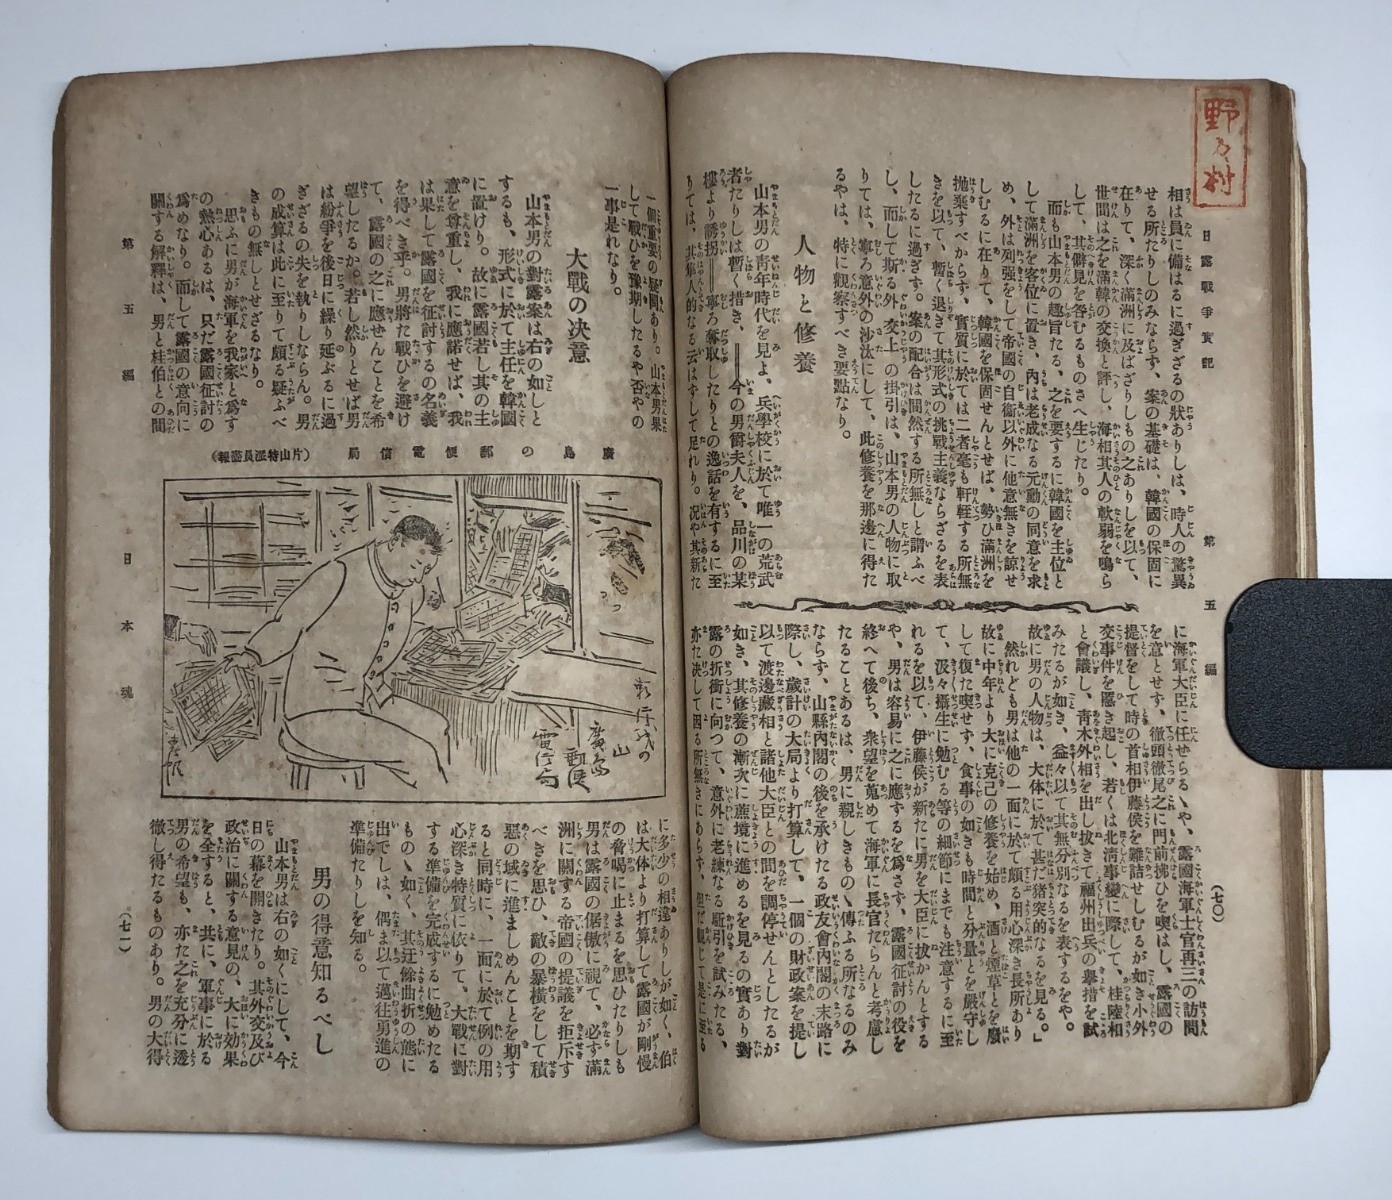 野々村
日露戰爭實記
第五編
(七〇)
相は員に備はるに過ぎざるの狀ありしは、時人の驚異
せる所たりしのみならず、案の基礎は、韓國の保固に
在りて、深く滿洲に及ばざりしもの之ありしを以て、
世間は之を滿韓の交換と評し、海相其人の軟弱を鳴ら
して、其僻見を咎むるものさへ生じたり。
而も山本男の趣旨たる、之を要するに韓國を主位と
して滿洲を客位に置き、內は老成なる元勳の同意を求
め、外は列强をして帝國の自衞以外に他意無きを諒せ
しむるに在りて、韓國を保固せんとせば、勢ひ滿洲を
抛棄すべからず、實質に於ては二者毫も軒輊する所無
きを以て、暫く退きて其形式の挑戰主義ならざるを表
したるに過ぎず。案の配合は間然する所無しと謂ふべ
し、而して斯る外交上の掛引は、山本男の人物に取
りては、寧ろ意外の沙汰にして、此修養を那邊に得た
るやは、特に觀察すべき要點なり。
人物と修養
山本男の靑年時代を見よ、兵學校に於て唯一の荒武
者たりしは暫く措き、══今の男爵夫人を、品川の某
樓より誘拐══寧ろ奪取したりとの逸話を有するに至
りては、其隼人的なる云はずして足れり。況や其新た
に海軍大臣に任せらるゝや、露國海軍士官再三の訪問
を意とせず、徹頭徹尾之に門前拂ひを喫はし、露國の
提督をして時の首相伊藤侯を難詰せしむるが如き小外
交事件を惹き起し、若くは北淸事變に際して、桂陸相
と會議し、靑木外相を出し拔きて福州出兵の擧措を試
みたるが如き、益々以て其無分別なるを表するをや。
故に男の人物は、大体に於て甚だ猪突的なるを見る。」
然れども男は他の一面に於て頗る用心深き長所あり
故に中年より大に克己の修養を始め、酒と煙草とを廢
して復た喫せず、食事の如きも時間と分量とを嚴守し
て、汲々攝生に勉むる等の細節にまでも注意するに至
れるを以て、伊藤侯が新たに男を大臣に拔かんとする
や、男は容易に之に應するを爲さず、露國征討の役を
終へて後ち、衆望を蒐めて海軍に長官たらんと考慮し
たることあるは、男に親しきものゝ傳ふる所なるのみ
ならず、山縣內閣の後を承けたる政友會內閣の末路に
際し、歲計の大局より打算して、一個の財政案を提し
以て渡邊藏相と諸他大臣との間を調停せんとしたるが
如き、其修養の漸次に蔗境に進めるを見るの實あり對
露の折衝に向つて、意外に老練なる駈引を試みたる、
亦た決して因る所無きにあらず、但だ觀じて是に至る
一個重要の疑問あり。山本男果
して戰ひを豫期したるや否やの
一事是れなり。
大戰の決意
山本男の對露案は右の如しと
するも、形式に於て主任を韓國
に置けり。故に露國若し其の主
意を尊重し、我に應諾せば、我
は果して露國を征討するの名義
を得べき乎。男將た戰ひを避け
て、露國の之に應せんことを希
望したるか。若し然りとせば男
は紛爭を後日に繰り延ぶるに過
ぎざるの失を執りしならん。男
の成算は此に至りて頗る疑ふべ
きもの無しとせざるなり。
思ふに男が海軍を我家と爲す
の熱心あるは、只だ露國征討の
爲めなり。而して露國の意向に
關する解釋は、男と桂伯との間
廣島の郵便電信局
(片山特派員密報)
山
廣島
郵便
電信局
に多少の相違ありしが如く、伯
は大体より打算して露國が剛慢
の脅喝に止まるを思ひたりしも
男は露國の倨傲に視て、必ず滿
洲に關する帝國の提議を拒斥す
べきを思ひ、敵の暴橫をして積
惡の域に進ましめんことを期す
ると同時に、一面に於て例の用
心深き特質に依りて、大戰に對
する準備を完成するに勉めたる
ものゝ如く、其迂餘曲折の態に
出でしは、偶ま以て邁往勇進の
準備たりしを知る。
男の得意知るべし
山本男は右の如くにして、今
日の幕を開きたり。其外交及び
政治に關する意見の、大に効果
を全すると、共に、軍事に於る
男の希望も、亦た之を充分に透
徹し得たるものあり。男の大得
第五編
日本魂
(七一)